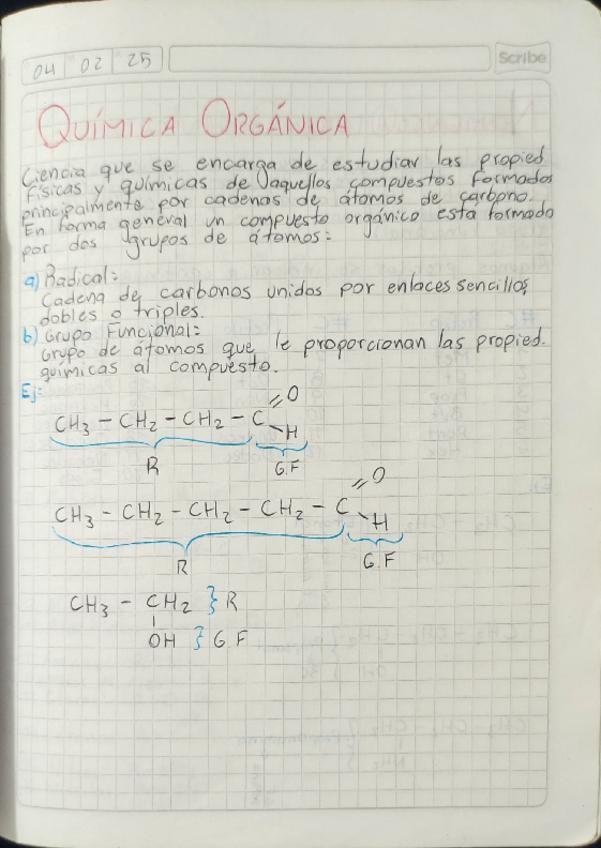 04 02 25
Scribe
QUÍMICA ORGÁNICA
Ciencia que se encarga de estudiar las propied
físicas y químicas de aquellos compuestos formados
principalmente por cadenas de átomos de carbono.
En forma general un compuesto orgánico esta formado
por dos grupos de átomos:
a) Radical:
Cadena de carbonos unidos por enlaces sencillos,
dobles o triples.
b) Grupo Funcional:
Grupo de átomos que le proporcionan las propied.
químicas al compuesto.
Ej:
O
CH3 - CH2 - CH2 - C
H
R G.F
O
CH3 - CH2 - CH2 - CH2 - C
H
R G.F
CH3 - CH2 } R
OH } G F